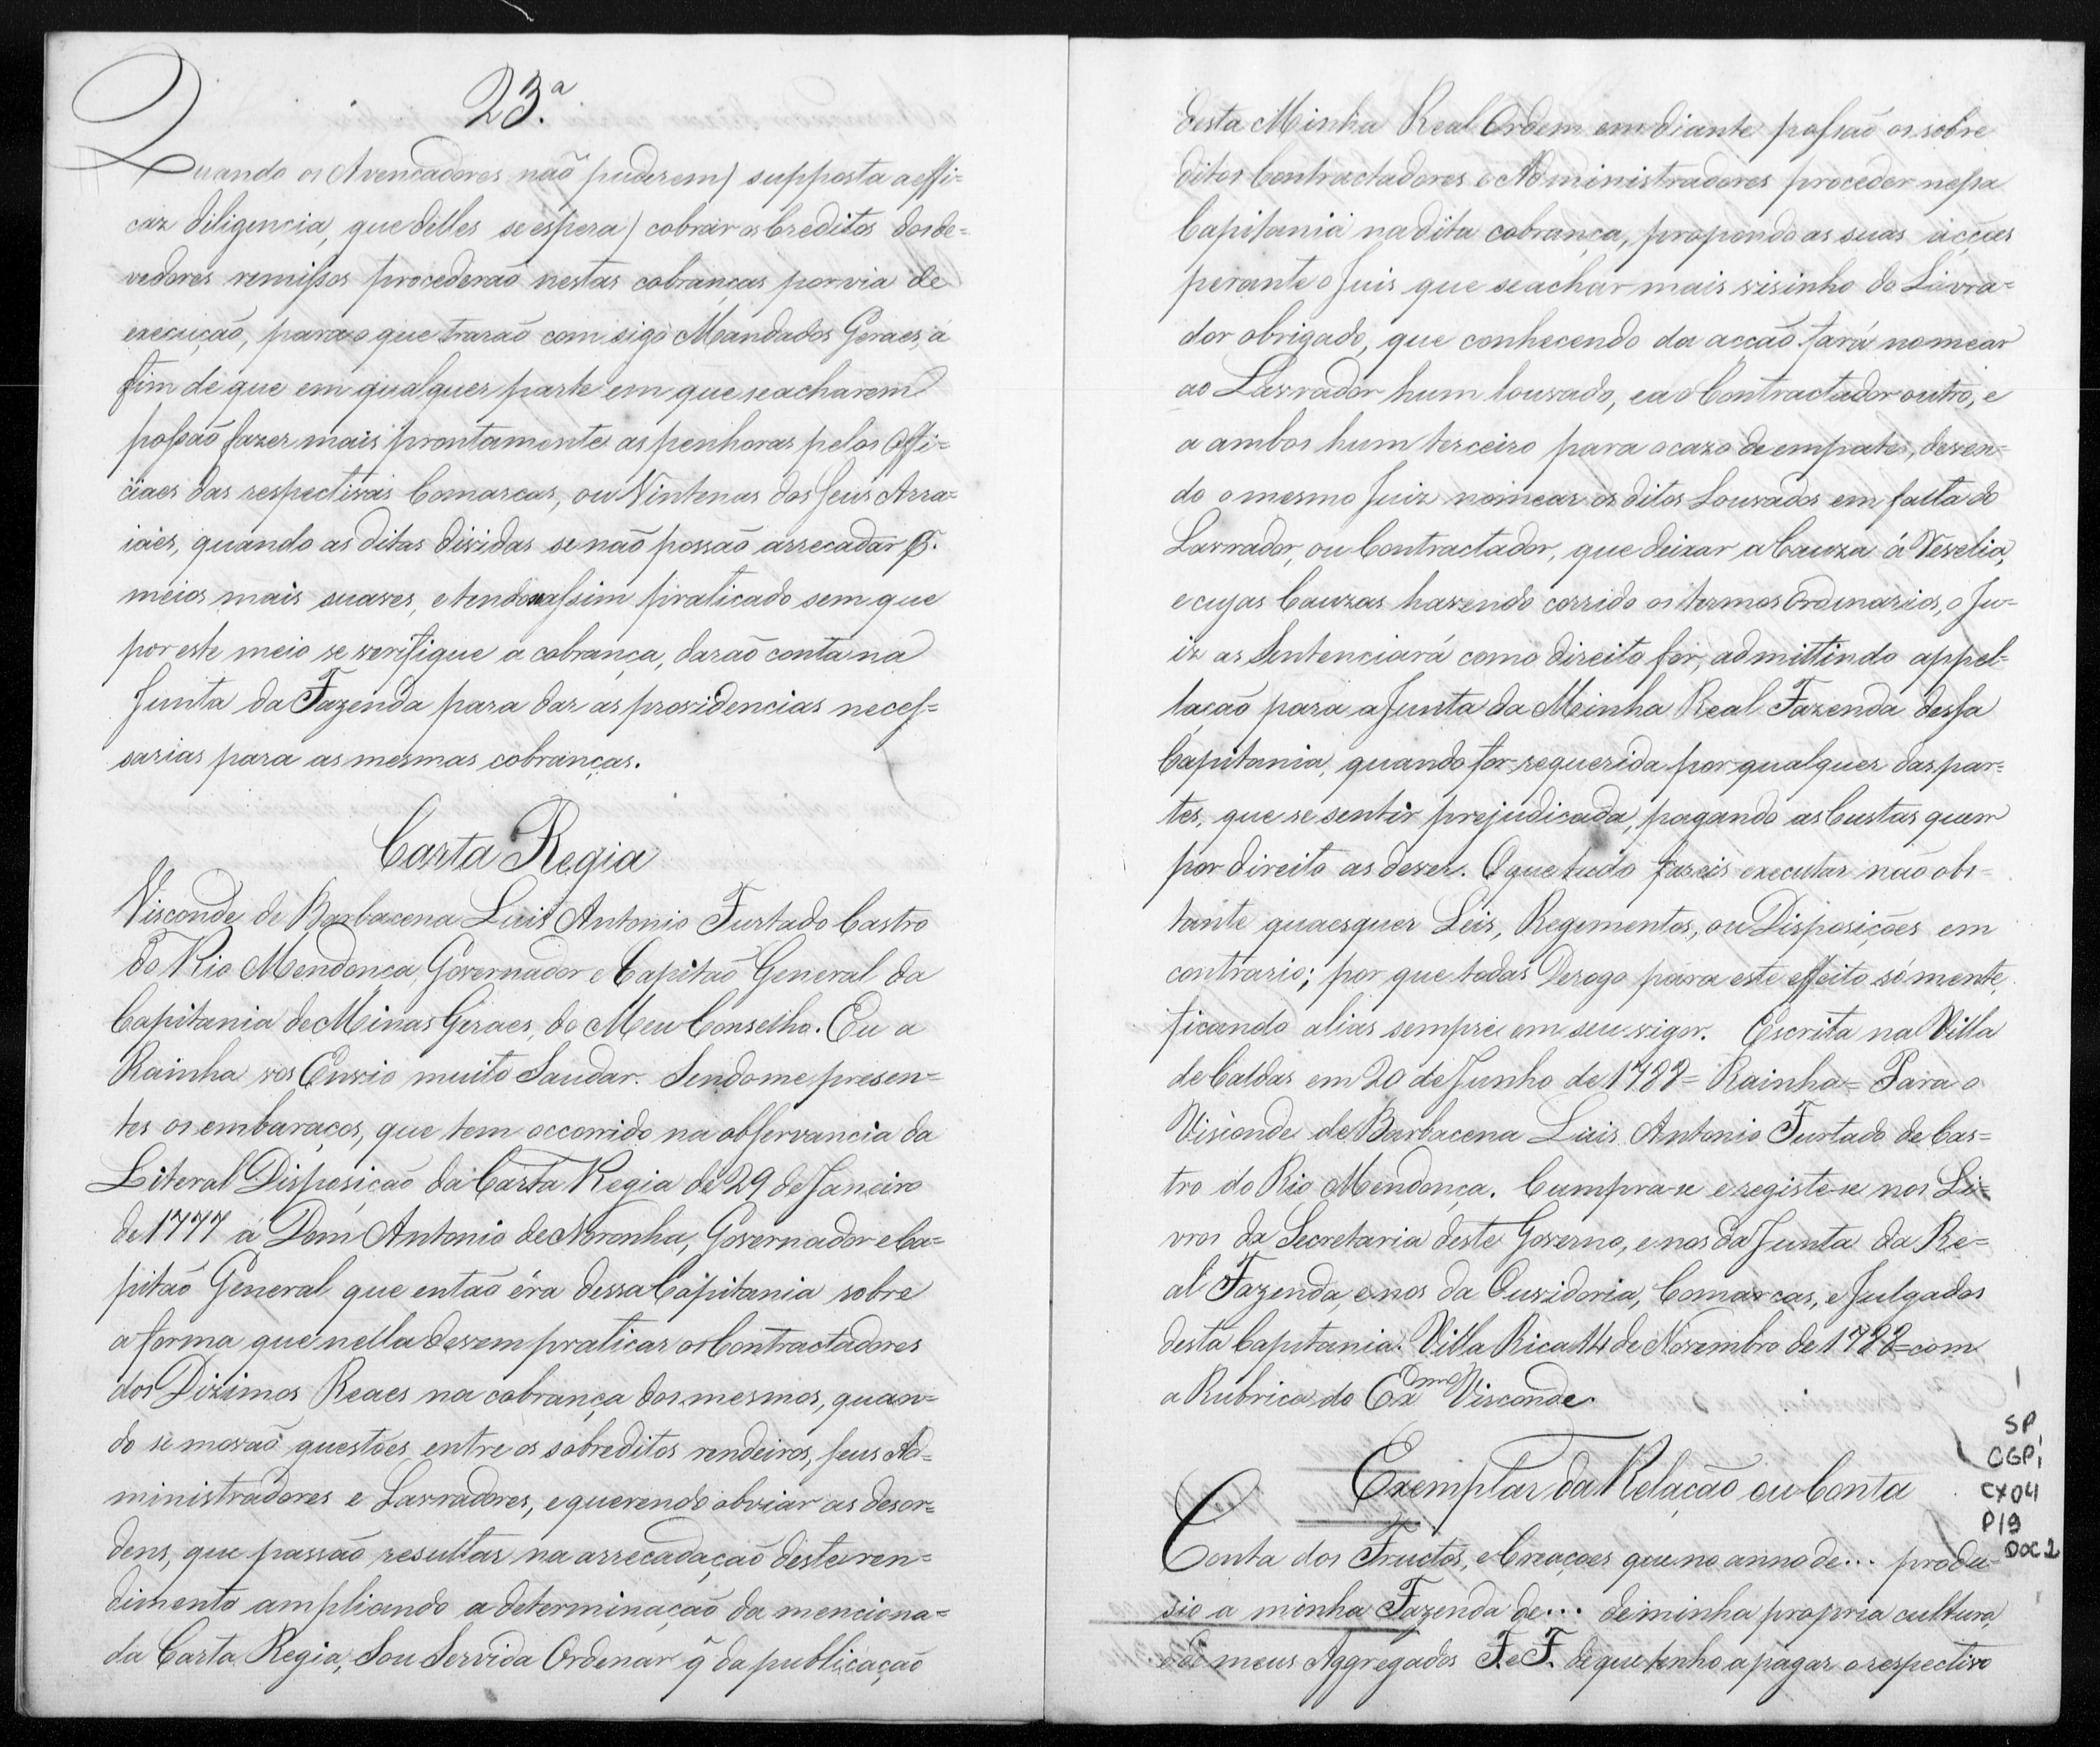 23.ª
Quando os Avençadores não puderem) supposta a effi-
caz diligencia, que delles se espera) cobrar os Creditos dos de-
vedores remissos procederão nestas cobranças por via de
execução, para o que trarão com sigo Mandados Geraes, a
fim de que em qualquer parte em que se acharem
possão fazer mais prontamente as penhoras pelos Offi-
ciaes das respectivas Comarcas, ou Vintenas dos seus Arra-
iaes, quando as ditas dividas se não possão arrecadar p.
meios mais suaves, e tendo assim praticado sem que
por este meio se verifique a cobrança, darão conta na
Junta da Fazenda para dar as providencias neces-
sarias para as mesmas cobranças.
Carta Regia
Visconde de Barbacena Luis Antonio Furtado Castro
do Rio Mendonça, Governador e Capitão General da
Capitania de Minas Geraes, do Meu Conselho. Eu a
Rainha vos Envio muito Saudar. Sendome presen-
tes os embaraços, que tem occorrido na observancia da
Literal Disposição da Carta Regia de 29 de Janeiro
de 1777 a Dom Antonio de Noronha, Governador e Ca-
pitão General que então éra dessa Capitania sobre
a forma que nella devem praticar os Contractadores
dos Dizimos Reaes na cobrança dos mesmos, quan-
do se movão questões entre os sobreditos rendeiros, seus Ad-
ministradores e Lavradores, e querendo obviar as desor-
dens, que possão resultar na arrecadação deste ren-
dimento ampliando a determinação da menciona-
da Carta Regia, Sou Servida Ordenar q̃ da publicação
desta Minha Real Ordem em diante possão os sobre
ditos Contractadores e Administradores proceder nessa
Capitania na dita cobrança, propondo as suas acções
perante o Juis que se achar mais visinho do Lavra-
dor obrigado, que conhecendo da acção fará nomear
ao Lavrador hum louvado, e ao Contractador outro, e
a ambos hum terceiro para o cazo de empate, deven-
do o mesmo Juiz nomear os ditos Louvados em falta do
Lavrador, ou Contractador, que deixar a Cauza á Revelia,
e cujas Cauzas havendo corrido os termos Ordinarios, o Ju-
iz as Sentenciará como direito for, admittindo appel-
lação para a Junta da Minha Real Fazenda dessa
Capitania, quando for requerida por qualquer das par-
tes, que se sentir prejudicada, pagando as Custas quem
por direito as dever. O que tudo fareis executar não obs-
tante quaesquer Leis, Regimentos, ou Disposições em
contrario; por que todas Derogo para este effeito sómente,
ficando alias sempre em seu vigor. Escrita na Villa
de Caldas em 20 de Junho de 1788= Rainha= Para o
Visconde de Barbacena Luis Antonio Furtado de Cas-
tro do Rio Mendonça. Cumpra-se e registe-se nos Li-
vros da Secretaria deste Governo, e nos da Junta da Re-
al Fazenda, e nos da Ouvidoria, Comarcas, e Julgados
desta Capitania. Villa Rica 14 de Novembro de 1788=com
a Rubrica do Exmo Visconde.
Exemplar da Relação ou Conta
Conta dos Fructos, e Creaçoes que no anno de... produ-
sio a minha Fazenda de... de minha propria cultura,
e de meus Aggregados F. e F. de que tenho a pagar o respectivo
SP
CGP1
CX04
P19
DOC2